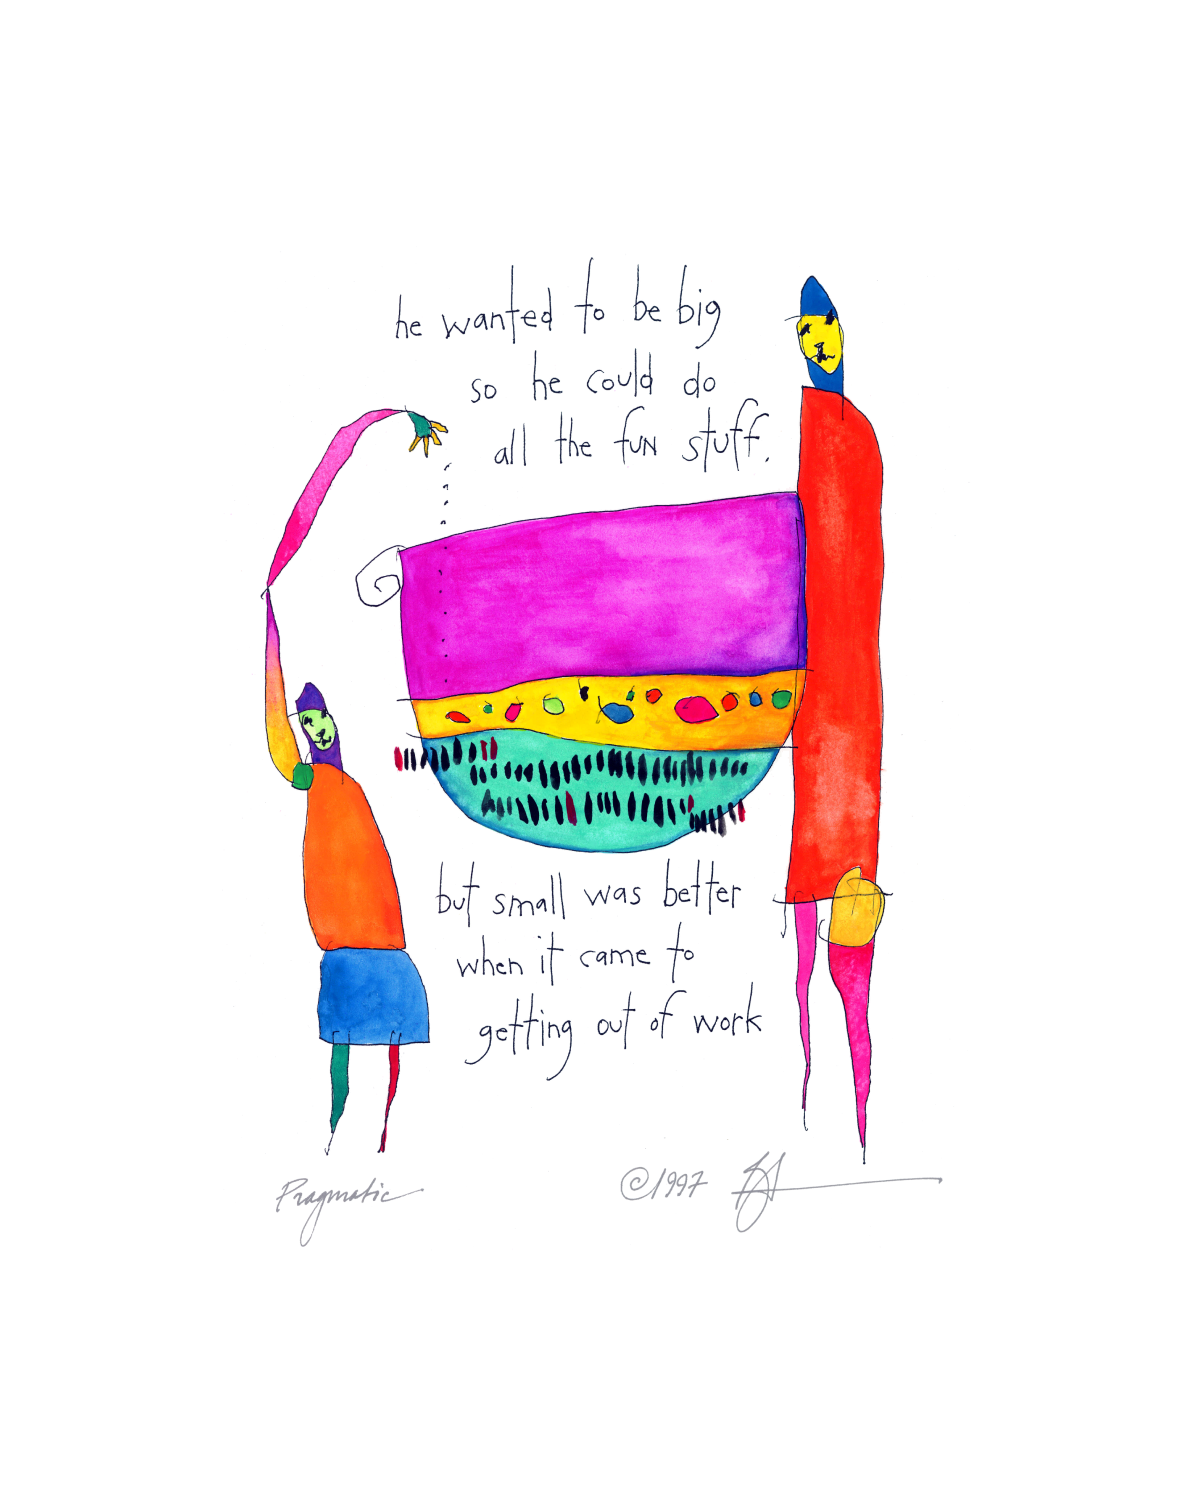 he wanted to be big
so he could do
all the fun stuff.
but small was better
when it came to
getting out of work
Pragmatic
©1997